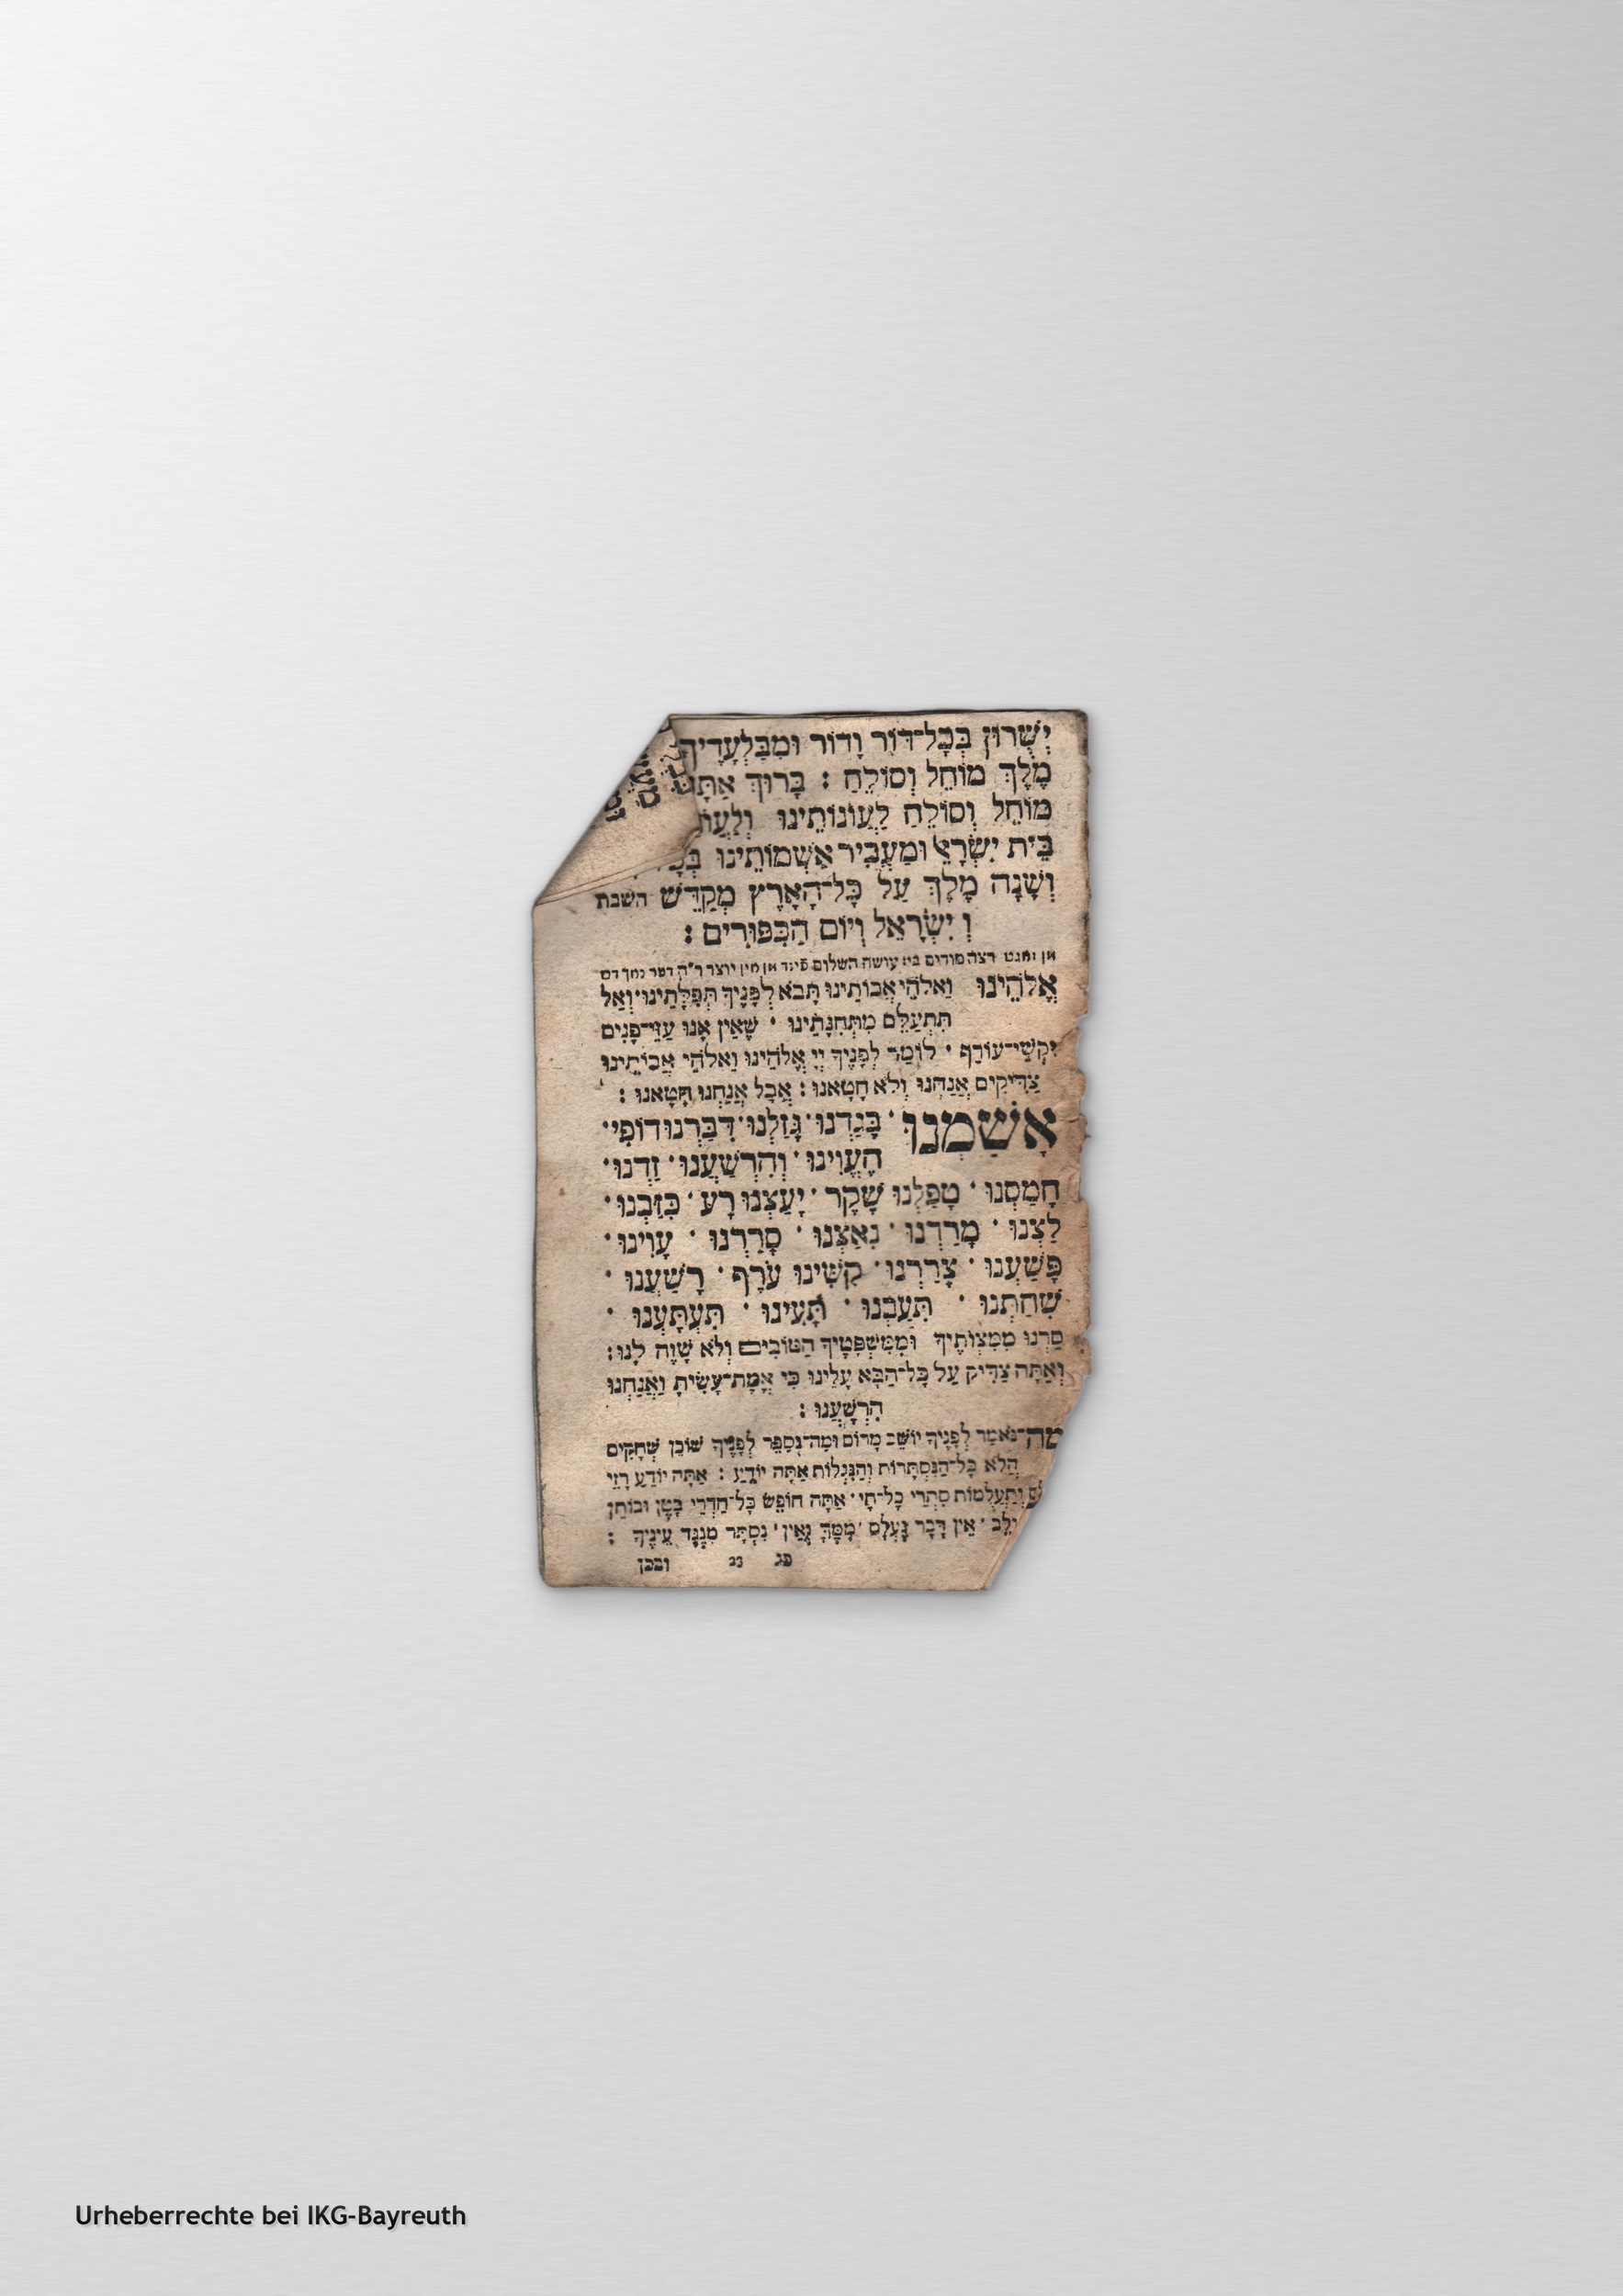 יְשֻׁרוּן בְּכָל־דּוֹר וָדוֹר וּמִבַּלְעָדֶיךָ
מֶלֶךְ מוֹחֵל וְסוֹלֵחַ : בָּרוּךְ אַתָּ
מוֹחֵל וְסוֹלֵחַ לַעֲוֹנוֹתֵינוּ וְלַעֲוֹ
בֵּית יִשְׂרָאֵל וּמַעֲבִיר אַשְׁמוֹתֵינוּ בְּכָ
וְשָׁנָה מֶלֶךְ עַל כָּל־הָאָרֶץ מְקַדֵּשׁ השבת
וְ יִשְׂרָאֵל וְיוֹם הַכִּפּוּרִים :
רצה מודים ביז עושה השלום
אֱלֹהֵינוּ וֵאלֹהֵי אֲבוֹתֵינוּ תָּבֹא לְפָנֶיךָ תְּפִלָּתֵינוּ · וְאַל
תִּתְעַלֵּם מִתְּחִנָּתֵינוּ · שֶׁאֵין אָנוּ עַזֵּי־פָנִים
וּקְשֵׁי־עוֹרֶף · לוֹמַר לְפָנֶיךָ יְיָ אֱלֹהֵינוּ וֵאלֹהֵי אֲבוֹתֵינוּ
צַדִּיקִים אֲנַחְנוּ וְלֹא חָטָאנוּ : אֲבָל אֲנַחְנוּ חָטָאנוּ :
אָשַׁמְנוּ · בָּגַדְנוּ · גָּזַלְנוּ · דִּבַּרְנוּ דוֹפִי ·
הֶעֱוִינוּ · וְהִרְשַׁעְנוּ · זַדְנוּ ·
חָמַסְנוּ · טָפַלְנוּ שֶׁקֶר · יָעַצְנוּ רָע · כִּזַּבְנוּ ·
לַצְנוּ · מָרַדְנוּ · נִאַצְנוּ · סָרַרְנוּ · עָוִינוּ ·
פָּשַׁעְנוּ · צָרַרְנוּ · קִשִּׁינוּ עֹרֶף · רָשַׁעְנוּ ·
שִׁחַתְנוּ · תִּעַבְנוּ · תָּעִינוּ · תִּעְתָּעְנוּ ·
סַרְנוּ מִמִּצְוֹתֶיךָ וּמִמִּשְׁפָּטֶיךָ הַטּוֹבִים וְלֹא שָׁוֶה לָנוּ :
וְאַתָּה צַדִּיק עַל כָּל־הַבָּא עָלֵינוּ כִּי אֱמֶת־עָשִׂיתָ וַאֲנַחְנוּ
הִרְשָׁעְנוּ :
מַה־נֹּאמַר לְפָנֶיךָ יוֹשֵׁב מָרוֹם וּמַה־נְּסַפֵּר לְפָנֶיךָ שׁוֹכֵן שְׁחָקִים
הֲלֹא כָּל־הַנִּסְתָּרוֹת וְהַנִּגְלוֹת אַתָּה יוֹדֵעַ : אַתָּה יוֹדֵעַ רָזֵי
וְתַעֲלֻמוֹת סִתְרֵי כָּל־חָי · אַתָּה חוֹפֵשׂ כָּל־חַדְרֵי בָטֶן וּבוֹחֵן
וָלֵב · אֵין דָּבָר נֶעְלָם מִמֶּךָּ וְאֵין נִסְתָּר מִנֶּגֶד עֵינֶיךָ :
ובכן
Urheberrechte bei IKG-Bayreuth